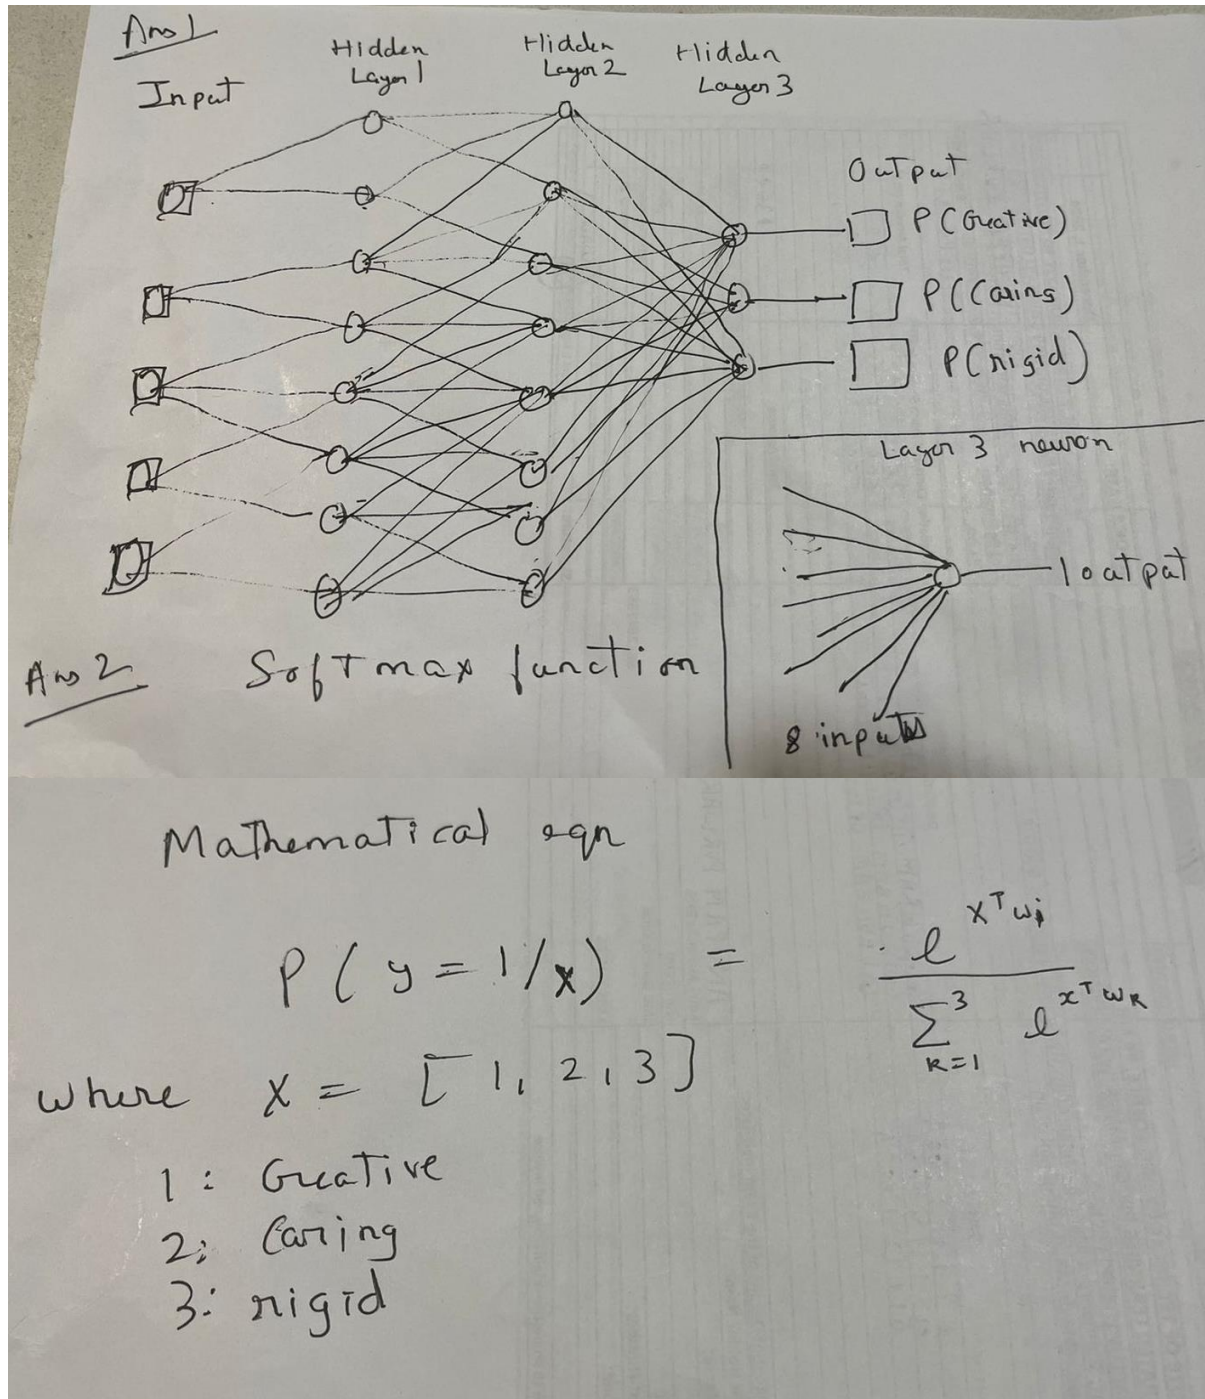 Ans 1
Input
Hidden
Layer 1
Hidden
Layer 2
Hidden
Layer 3
Output
P(Creative)
P(Caring)
P(rigid)
Layer 3 neuron
1 output
8 inputs
Ans 2 Softmax function
Mathematical eqn
P(y = 1/x) = e^{x^T w_i} / \sum_{k=1}^{3} e^{x^T w_k}
where x = [1, 2, 3]
1: Creative
2: Caring
3: rigid